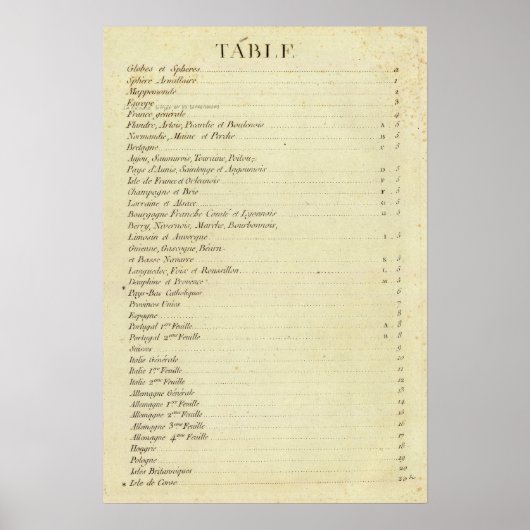 TABLE
Globes et Sphères a
Sphère Armillaire 1
Mappemonde 2
Europe 3
France générale 4
Flandre, Artois, Picardie et Boulenois A 5
Normandie, Maine et Perche B 5
Bretagne C 5
Anjou, Saumurois, Touraine, Poitou,
Pays d'Aunis, Saintonge et Angoumois D 5
Isle de France et Orleanois E 5
Champagne et Brie F 5
Lorraine et Alsace G 5
Bourgogne Franche Comté et Lyonnois H 5
Berry, Nivernois, Marche, Bourbonnois,
Limosin et Auvergne I 5
Guienne, Gascogne, Bearn
et Basse Navarre K 5
Languedoc, Foix et Roussillon L 5
Dauphine et Provence M 5
* Pays-Bas Catholiques 6
Provinces Unies 7
Espagne 8
Portugal 1ere Feuille A 8
Portugal 2eme Feuille B 8
Suisses 9
Italie Générale 10
Italie 1ere Feuille 11
Italie 2eme Feuille 12
Allemagne Générale 13
Allemagne 1ere Feuille 14
Allemagne 2eme Feuille 15
Allemagne 3eme Feuille 16
Allemagne 4eme Feuille 17
Hongrie 18
Pologne 19
Isles Britanniques 20
* Isle de Corse 20 bis